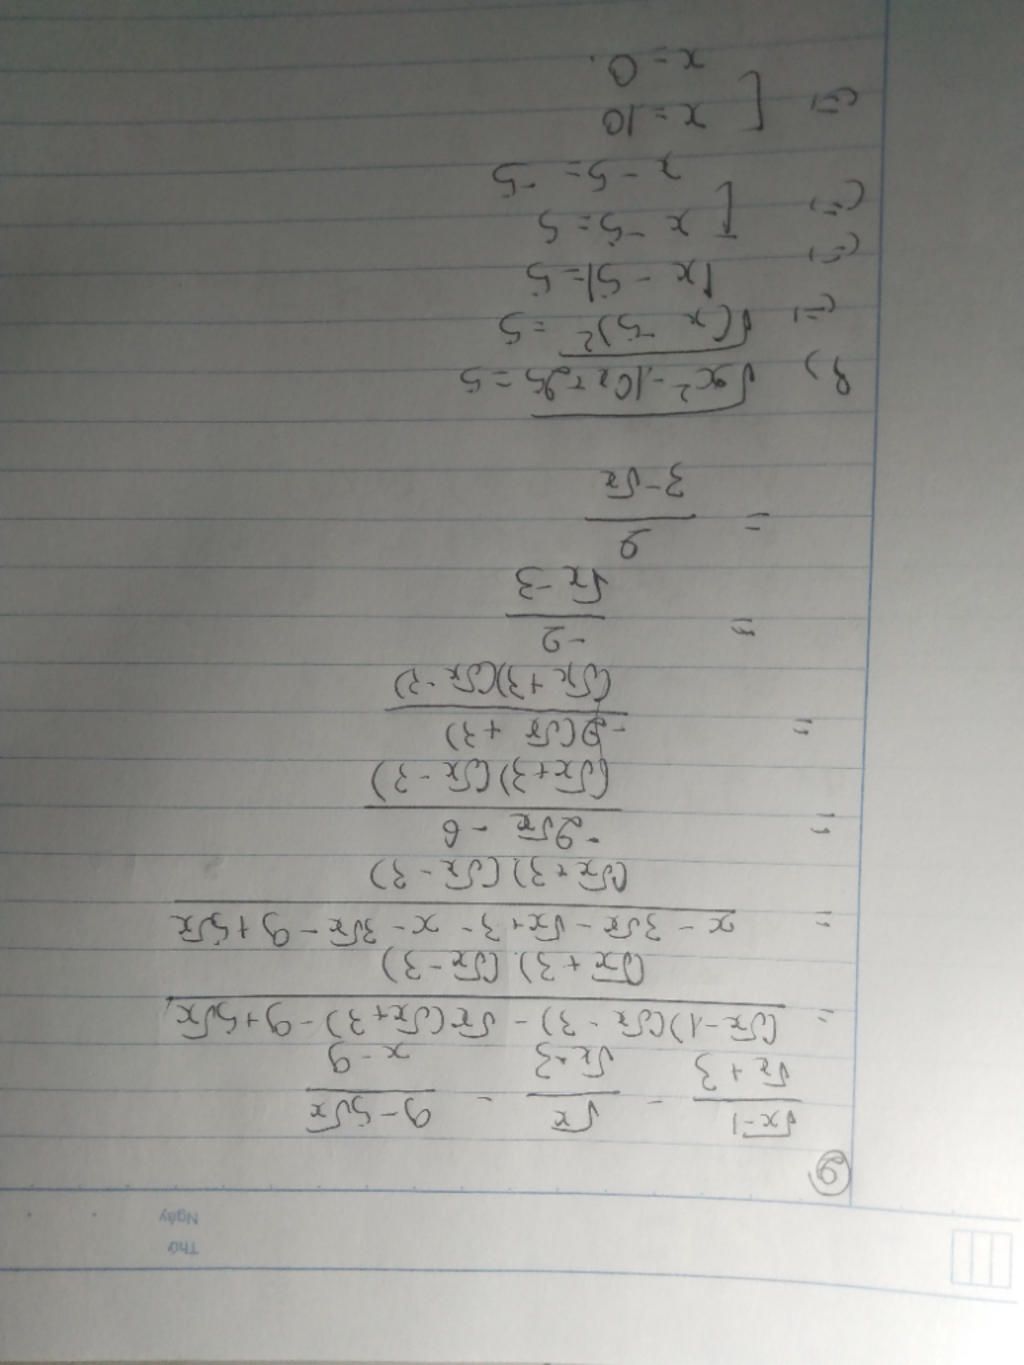 Thứ
Ngày
②
\frac{\sqrt{x}-1}{\sqrt{x}+3} - \frac{\sqrt{x}}{\sqrt{x}-3} - \frac{9-5\sqrt{x}}{x-9}
= \frac{(\sqrt{x}-1)(\sqrt{x}-3) - \sqrt{x}(\sqrt{x}+3) - 9+5\sqrt{x}}{(\sqrt{x}+3)(\sqrt{x}-3)}
= \frac{x-3\sqrt{x}-\sqrt{x}+3-x-3\sqrt{x}-9+5\sqrt{x}}{(\sqrt{x}+3)(\sqrt{x}-3)}
= \frac{-2\sqrt{x}-6}{(\sqrt{x}+3)(\sqrt{x}-3)}
= \frac{-2(\sqrt{x}+3)}{(\sqrt{x}+3)(\sqrt{x}-3)}
= \frac{-2}{\sqrt{x}-3}
= \frac{2}{3-\sqrt{x}}
3) \sqrt{x^2-10x+25}=5
(=) \sqrt{(x-5)^2}=5
(=) |x-5|=5
(=) [ x-5=5
x-5=-5
(=) [ x=10
x=0.